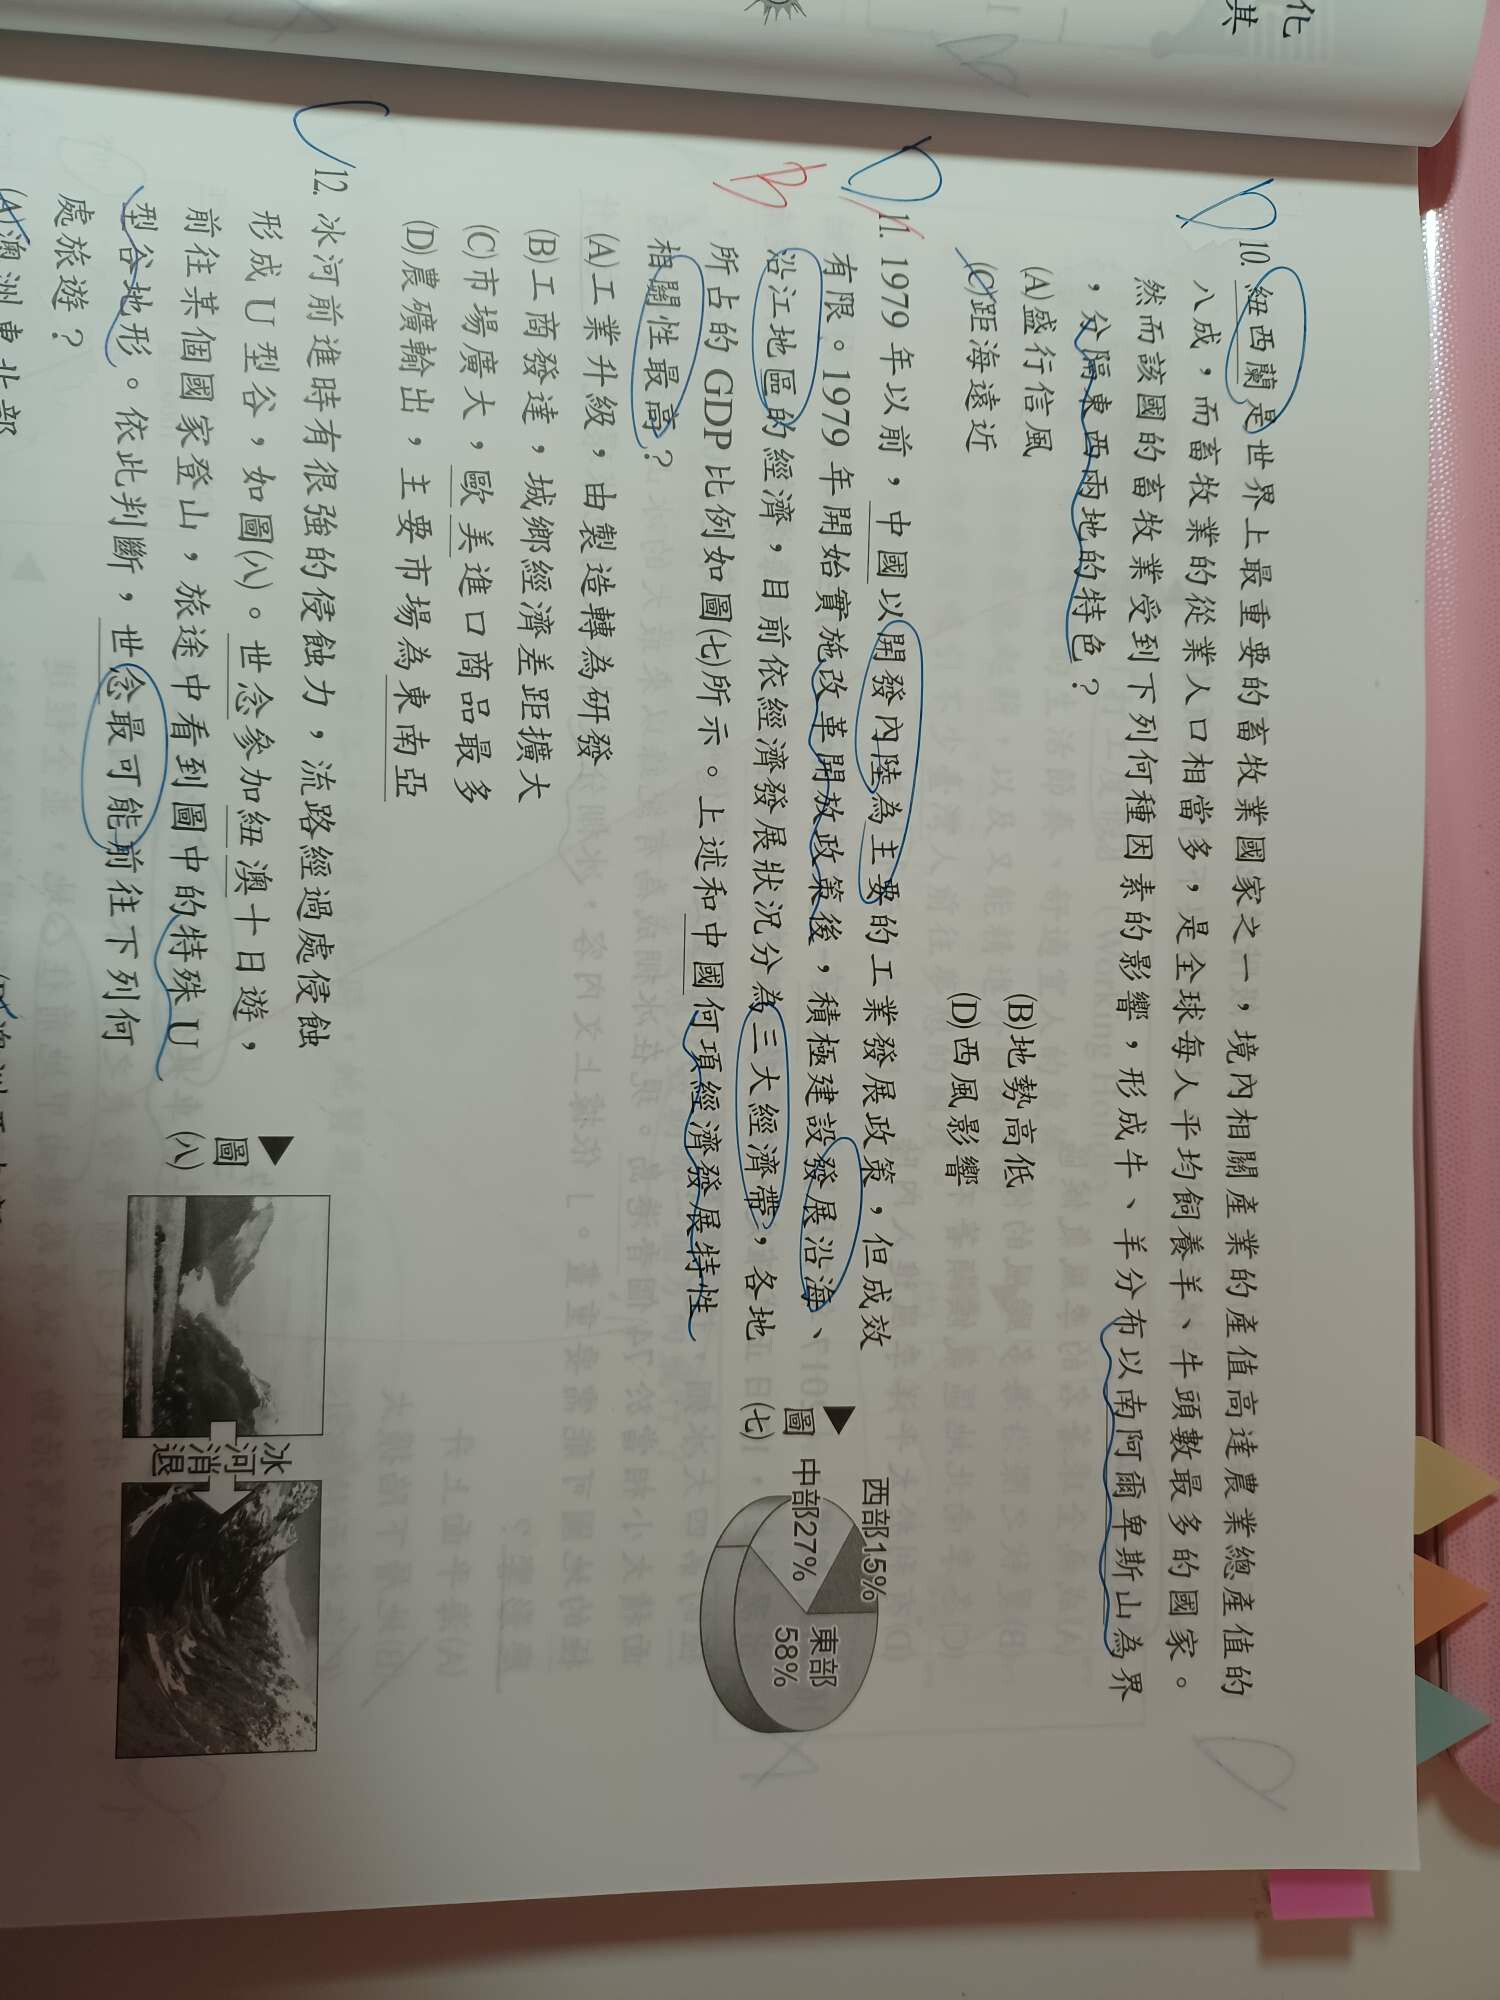 化
其
D
10. 紐西蘭是世界上最重要的畜牧業國家之一，境內相關產業的產值高達農業總產值的
八成，而畜牧業的從業人口相當多，是全球每人平均飼養羊、牛頭數最多的國家。
然而該國的畜牧業受到下列何種因素的影響，形成牛、羊分布以南阿爾卑斯山為界
，分隔東西兩地的特色？
(A)盛行信風 (B)地勢高低
(C)距海遠近 (D)西風影響
D
B
11. 1979 年以前，中國以開發內陸為主要的工業發展政策，但成效
有限。1979 年開始實施改革開放政策後，積極建設發展沿海、
沿江地區的經濟，目前依經濟發展狀況分為三大經濟帶，各地
所占的 GDP 比例如圖(七)所示。上述和中國何項經濟發展特性
相關性最高？
(A)工業升級，由製造轉為研發
(B)工商發達，城鄉經濟差距擴大
(C)市場廣大，歐美進口商品最多
(D)農礦輸出，主要市場為東南亞
圖
(七)
西部15%
中部27%
東部
58%
C
12. 冰河前進時有很強的侵蝕力，流路經過處侵蝕
形成 U 型谷，如圖(八)。世念參加紐澳十日遊，
前往某個國家登山，旅途中看到圖中的特殊 U
型谷地形。依此判斷，世念最可能前往下列何
處旅遊？
圖
(八)
冰河消退
(A)澳洲東北部